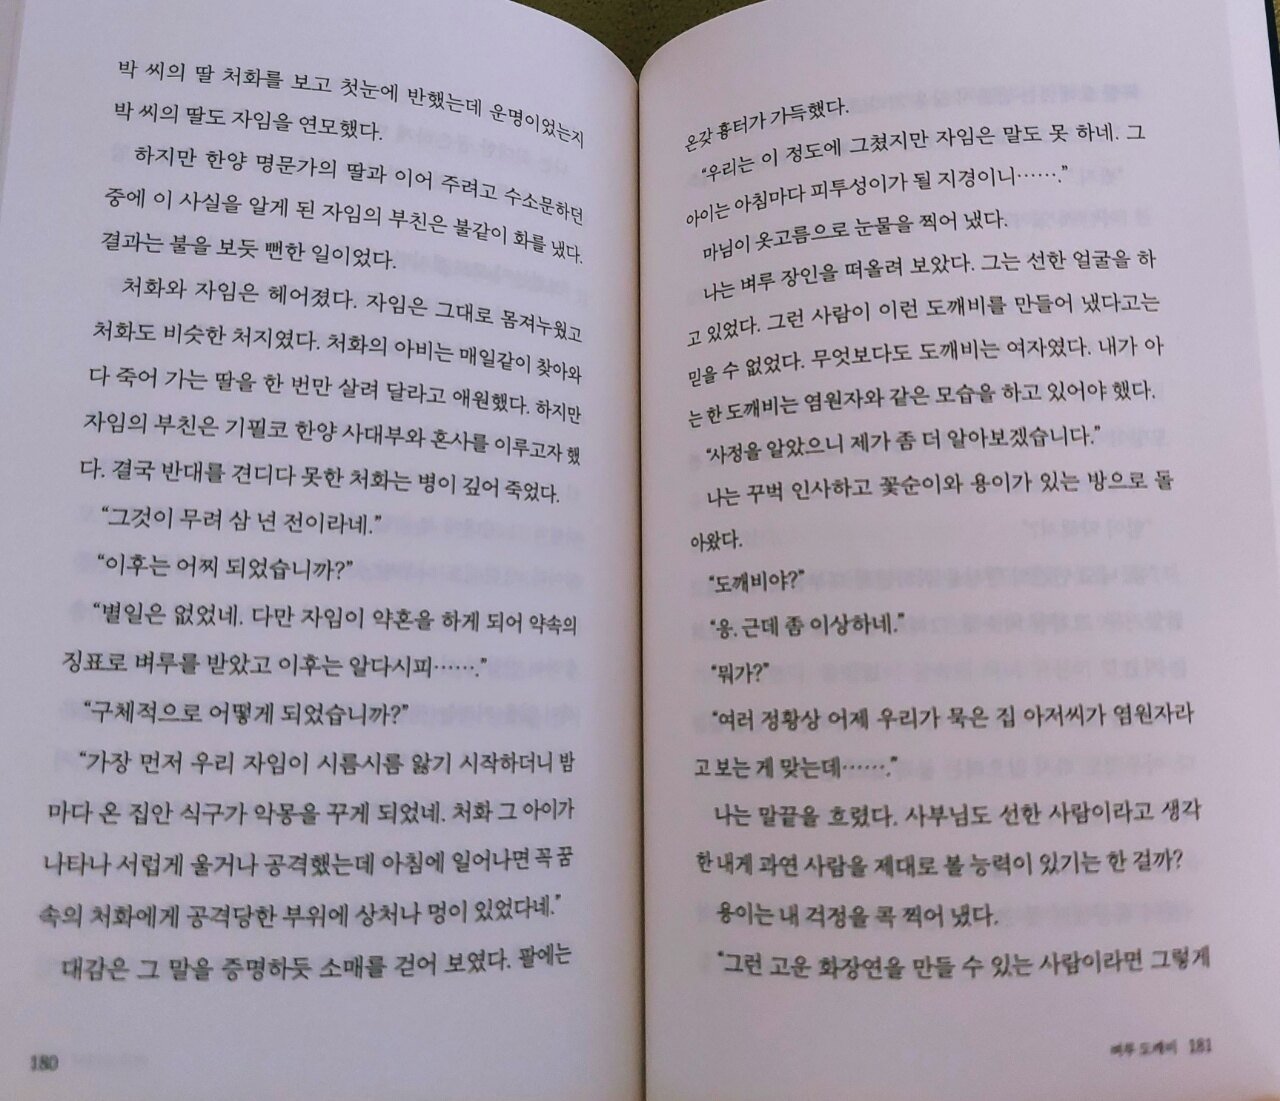 박 씨의 딸 처화를 보고 첫눈에 반했는데 운명이었는지
박 씨의 딸도 자임을 연모했다.
하지만 한양 명문가의 딸과 이어 주려고 수소문하던
중에 이 사실을 알게 된 자임의 부친은 불같이 화를 냈다.
결과는 불을 보듯 뻔한 일이었다.
처화와 자임은 헤어졌다. 자임은 그대로 몸져누웠고
처화도 비슷한 처지였다. 처화의 아비는 매일같이 찾아와
다 죽어 가는 딸을 한 번만 살려 달라고 애원했다. 하지만
자임의 부친은 기필코 한양 사대부와 혼사를 이루고자 했
다. 결국 반대를 견디다 못한 처화는 병이 깊어 죽었다.
“그것이 무려 삼 년 전이라네.”
“이후는 어찌 되었습니까?”
“별일은 없었네. 다만 자임이 약혼을 하게 되어 약속의
징표로 벼루를 받았고 이후는 알다시피…….”
“구체적으로 어떻게 되었습니까?”
“가장 먼저 우리 자임이 시름시름 앓기 시작하더니 밤
마다 온 집안 식구가 악몽을 꾸게 되었네. 처화 그 아이가
나타나 서럽게 울거나 공격했는데 아침에 일어나면 꼭 꿈
속의 처화에게 공격당한 부위에 상처나 멍이 있었다네.”
대감은 그 말을 증명하듯 소매를 걷어 보였다. 팔에는
180
온갖 흉터가 가득했다.
“우리는 이 정도에 그쳤지만 자임은 말도 못 하네. 그
아이는 아침마다 피투성이가 될 지경이니…….”
마님이 옷고름으로 눈물을 찍어 냈다.
나는 벼루 장인을 떠올려 보았다. 그는 선한 얼굴을 하
고 있었다. 그런 사람이 이런 도깨비를 만들어 냈다고는
믿을 수 없었다. 무엇보다도 도깨비는 여자였다. 내가 아
는 한 도깨비는 염원자와 같은 모습을 하고 있어야 했다.
“사정을 알았으니 제가 좀 더 알아보겠습니다.”
나는 꾸벅 인사하고 꽃순이와 용이가 있는 방으로 돌
아왔다.
“도깨비야?”
“응. 근데 좀 이상하네.”
“뭐가?”
“여러 정황상 어제 우리가 묵은 집 아저씨가 염원자라
고 보는 게 맞는데…….”
나는 말끝을 흐렸다. 사부님도 선한 사람이라고 생각
한 내게 과연 사람을 제대로 볼 능력이 있기는 한 걸까?
용이는 내 걱정을 콕 찍어 냈다.
“그런 고운 화장연을 만들 수 있는 사람이라면 그렇게
벼루 도깨비 181